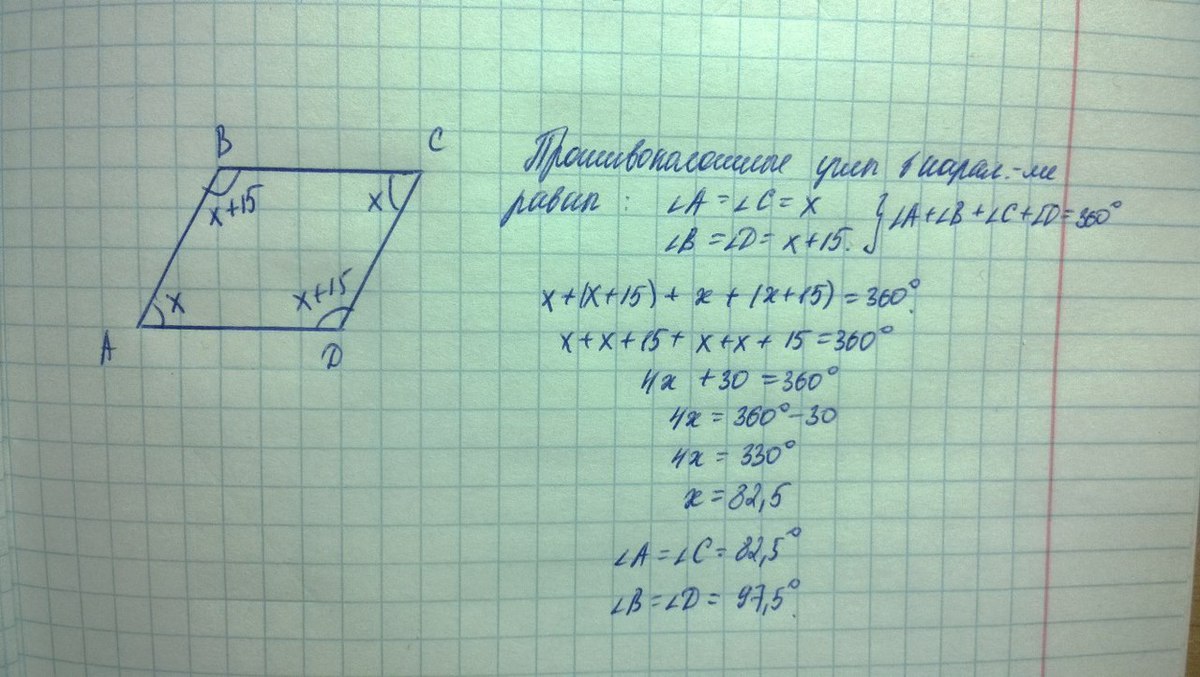 B
C
x+15
x
x
x+15
A
D
Противоположные углы в парал.-ме
равны : ∠A = ∠C = x
∠B = ∠D = x+15.
} ∠A+∠B+∠C+∠D=360°
x+(x+15)+ x + (x+15) = 360°.
x+x+15+ x+x+ 15 =360°
4x +30 =360°
4x = 360°-30
4x = 330°
x = 82,5
∠A =∠C = 82,5°
∠B=∠D = 97,5°.